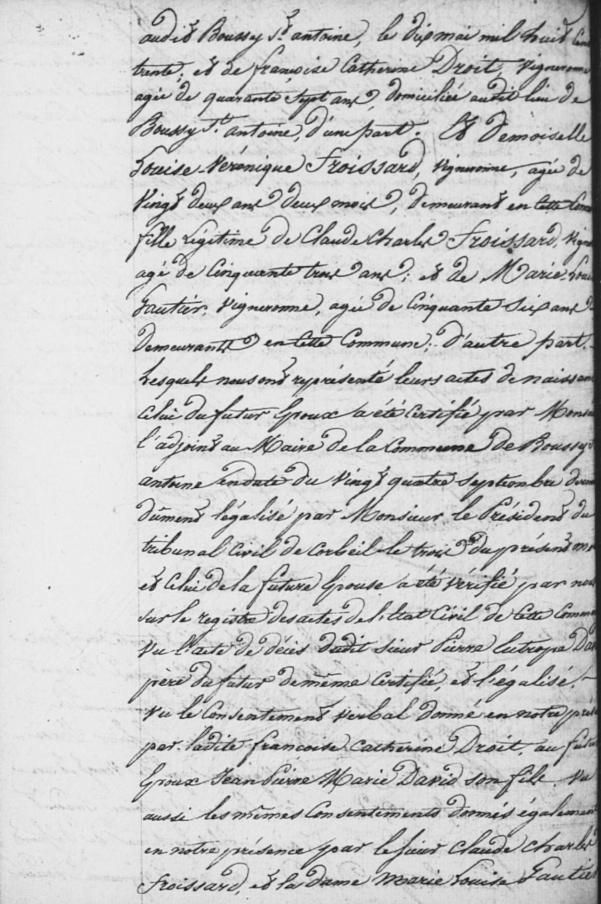 audit Boussy St. antoine, le dix mai mil huit cent
trente, et de francoise Catherine Droit, vigneronne
agée de quarante sept ans, domiciliée audit lieu de
Boussy St. antoine, d'une part. Et Demoiselle
Louise Véronique Froissard, vigneronne, agée de
vingt deux ans deux mois, demeurant en cette Comm
fille légitime de Claude Charles Froissard, vign
agé de Cinquante trois ans; et de Marie Loui
Gautier, vigneronne, agée de Cinquante six ans
demeurants en Cette Commune; d'autre part.
Lesquels nous ont représenté leurs actes de naissan
Celui du futur Epoux a été Certifié par Monsi
l'adjoint au Maire de la Commune de Boussy St
antoine en date du vingt quatre Septembre dern
dument légalisé par Monsieur le Président du
tribunal Civil de Corbeil le trois du présent mo
et Celui de la future Epouse a été vérifié par nou
sur le registre des actes de l'Etat Civil de Cette Commu
vu l'acte de décès dudit sieur Pierre Eutrope Dav
pere du futur de même Certifié, et légalisé,
vu le Consentement verbal donné en notre prés
par ladite francoise Catherine Droit, au futur
Epoux Jean Pierre Marie David son fils. vu
aussi les mêmes Consentements donnés également
en notre présence par le sieur Claude Charles
Froissard, et la dame Marie Louise Gautier